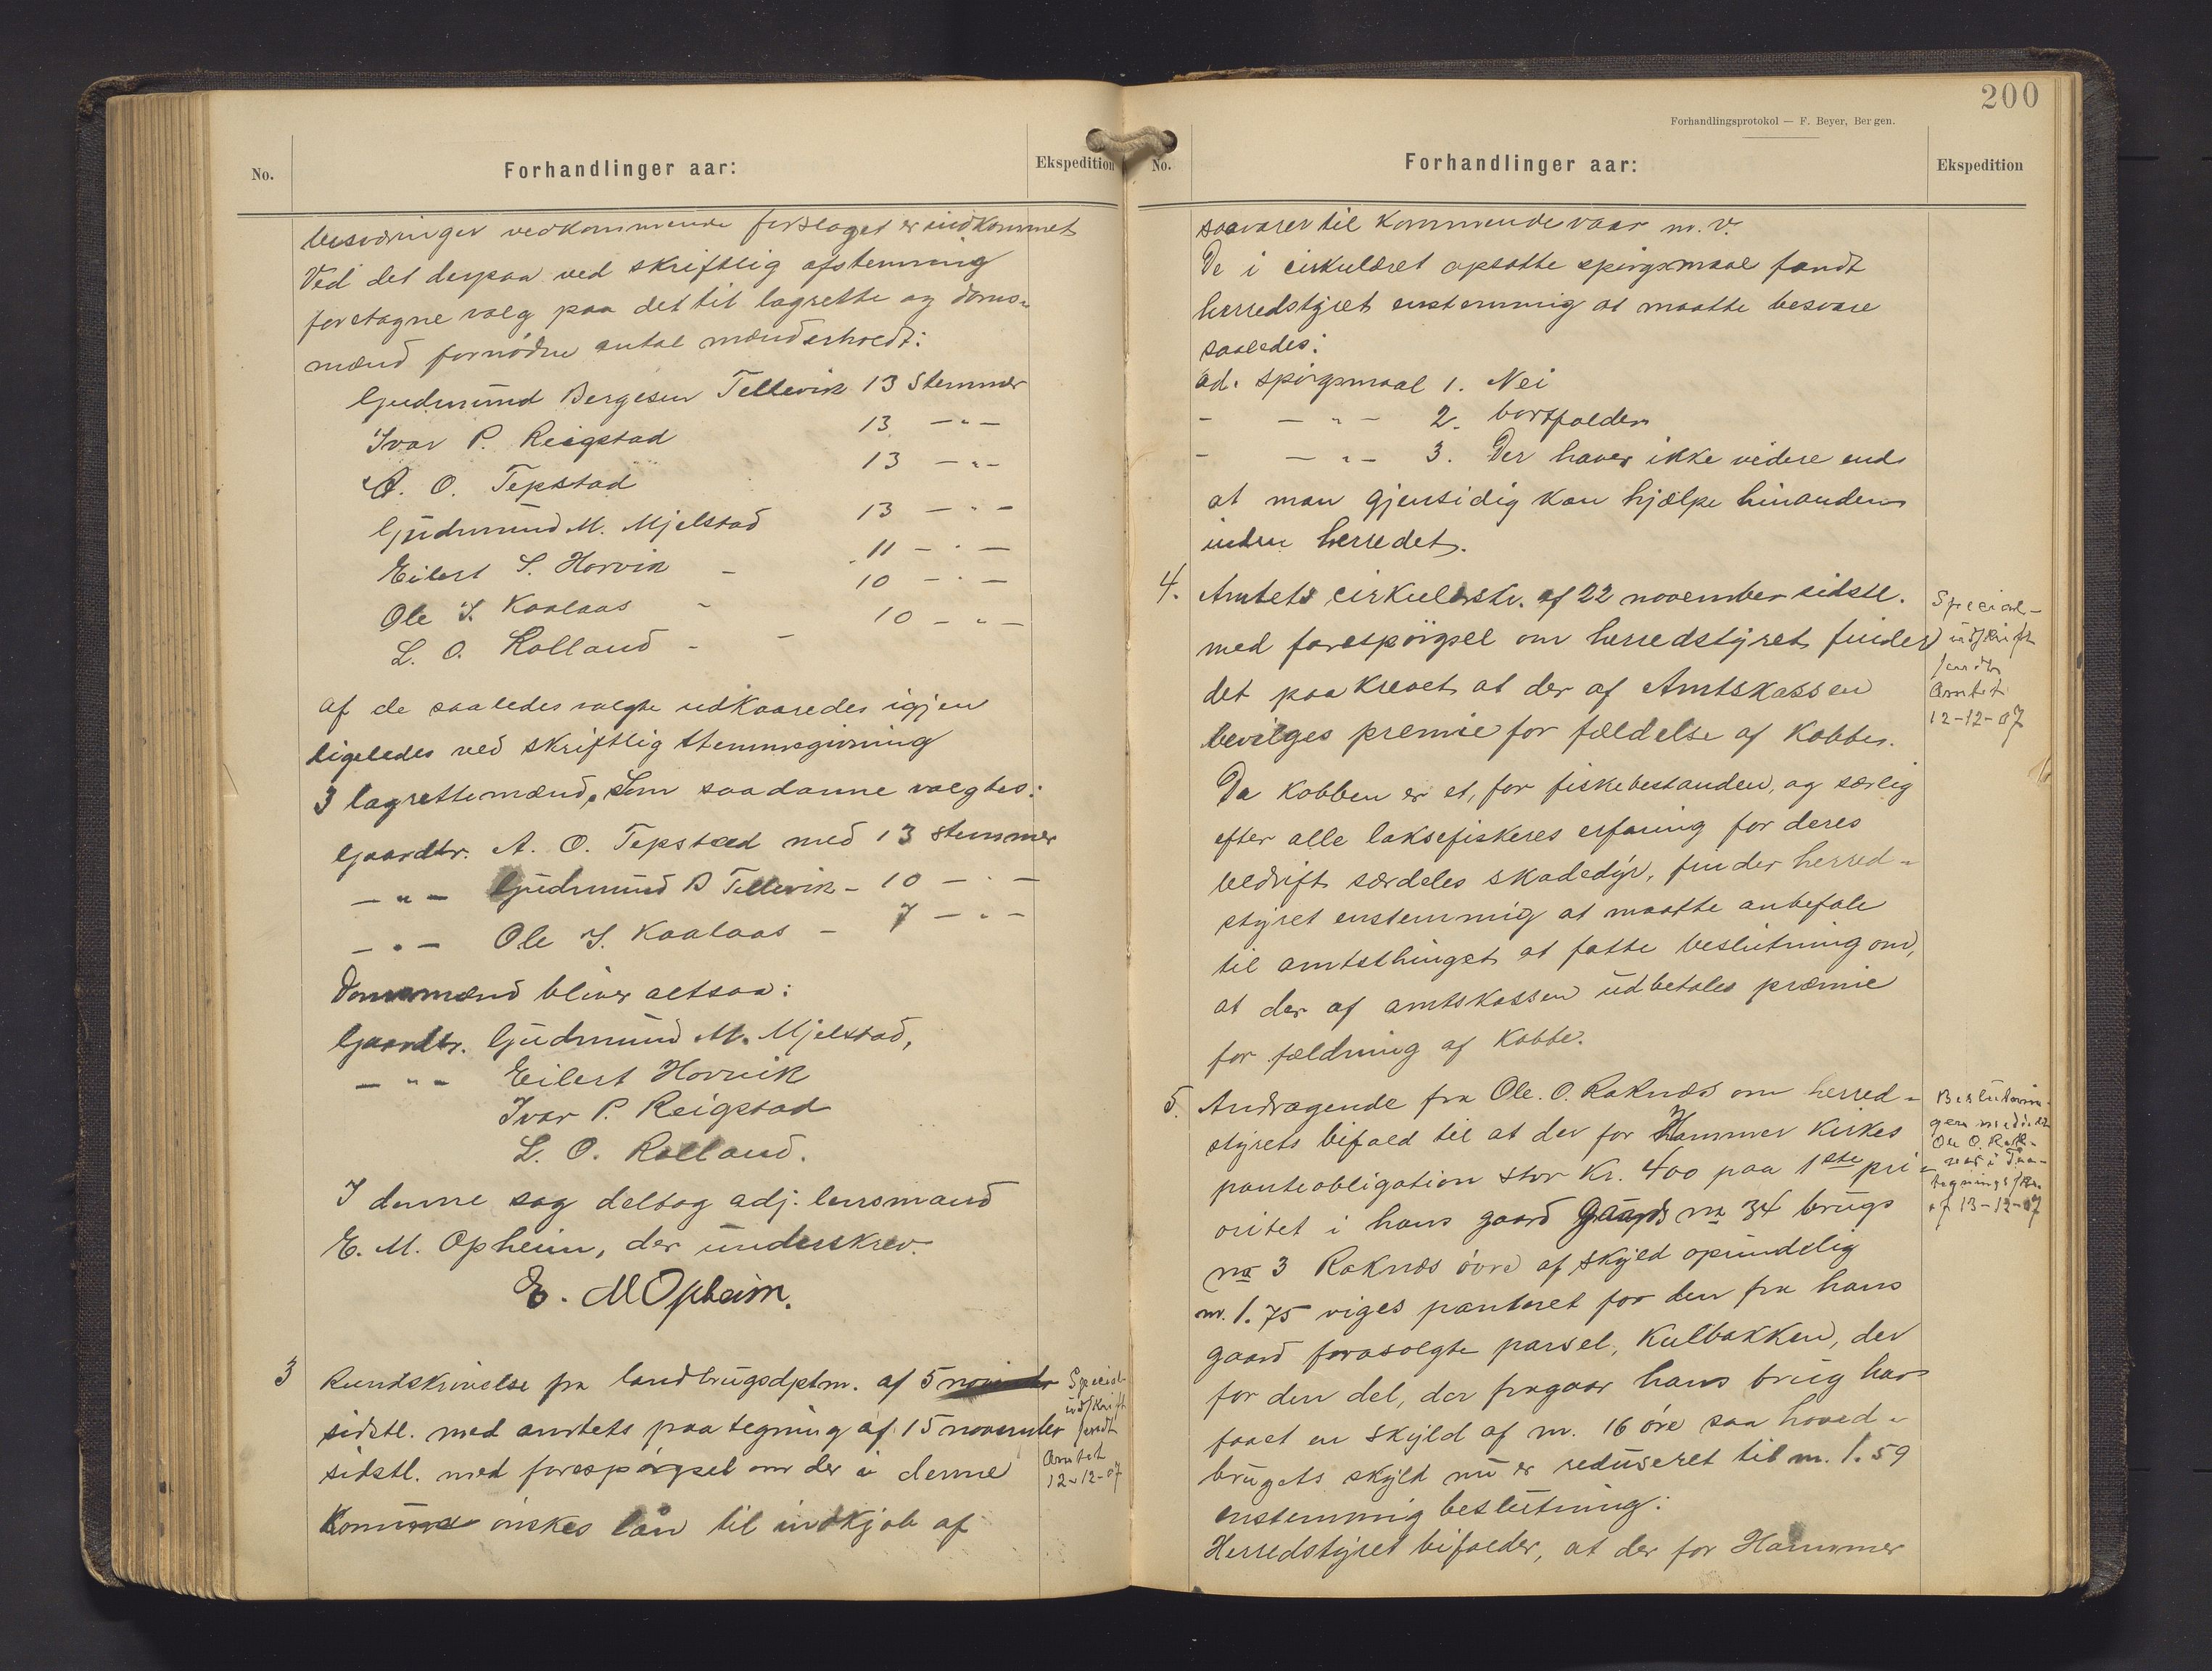 No.
Forhandlinger aar:
Ekspedition
besværinger vedkommende forslaget er indkommet
Ved det derpaa ved skriftlig afstemning
foretagne valg paa det til lagrette og doms-
mænd fornødne antal mænd erholdt:
Gudmund Bergesen Tellevik 13 Stemmer
Ivar P. Reigstad 13 — " —
A. O. Tepstad 13 — " —
Gudmund M. Mjelstad 13 — " —
Eilert S. Horvik - 11 — " —
Ole I. Kaalaas - 10 — " —
L. O. Rolland - - 10 — " —
af de saaledes valgte udkaaredes igjen
ligeledes ved skriftlig stemmegivning
3 lagrettemænd. Som saadanne valgtes:
Gaardbr. A. O. Tepstad med 13 stemmer
— " — Gudmund B Tellevik - 10 — " —
— " — Ole I. Kaalaas - 7 — " —
Domsmænd bliver altsaa:
Gaardbr. Gudmund M. Mjelstad,
— " — Eilert Horvik
Ivar P. Reigstad
L. O. Rolland.
I denne sag deltog adj. lensmand
E. M. Opheim, der underskrev.
E. M Opheim.
3 Rundskrivelse fra landbrugsdptm. af 5 novembr
sidstl. med amtets paategning af 15 november
sidstl. med forespørgsel om der i denne
Komune ønskes lån til indkjøb af
Special-
udskrift
sendt
Amtet
12-12-07
200
Forhandlingsprotokol — F. Beyer, Bergen.
No.
Forhandlinger aar:
Ekspedition
saavarer til kommende vaar m. v.
De i cirkulæret opsatte spørgsmaal fandt
herredstyret enstemmig at maatte besvare
saaledes:
ad. spørgsmaal 1. Nei
- — " — 2. bortfalder
- — " — 3. Der haves ikke videre end
at man gjensidig kan hjælpe hinanden
inden herredet.
4. Amtets cirkulærskr. af 22 november sidstl.
med forespørgsel om herredstyret finder
det paakrævet at der af Amtskassen
bevilges premie for fældelse af Kobbe.
Da kobben er et, for fiskebestanden, og særlig
efter alle laksefiskeres erfaring for deres
bedrift særdeles skadedyr, finder herred-
styret enstemmig at maatte anbefale
til amtsthinget at fatte beslutning om,
at der af amtskassen udbetales præmie
for fældning af Kobbe.
Special-
udskrift
sendt
Amtet
12-12-07
5. Andragende fra Ole. O. Raknæs om herred-
styrets bifald til at der for Hammer Kirkes
panteobligation stor Kr. 400 paa 1ste pri-
oritet i hans gaard Gaards no 34 brugs
no 3 Raknæs øvre af skyld oprindelig
m. 1.75 viges panteret for den fra hans
gaard frasolgte parsel, Kulbakken, der
for den del, der fragaar hans brug har
faaet en skyld af m. 16 øre saa hoved-
brugets skyld nu er reduseret til m. 1.59
enstemmig beslutning:
Herredstyret bifalder, at der for Hammer
Beslutnin-
gen meddelt
Ole O. Rak-
næs i Paa-
tegningsskr.
af 13-12-07